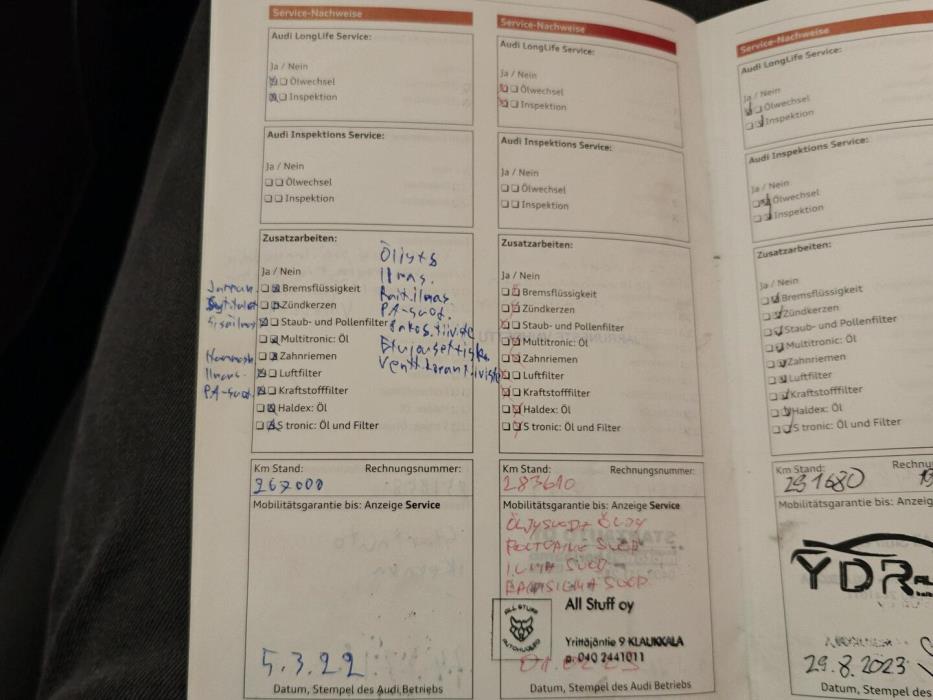 Service-Nachweise
Audi LongLife Service:
Ja / Nein
Ölwechsel
Inspektion
Audi Inspektions Service:
Ja / Nein
Ölwechsel
Inspektion
Zusatzarbeiten:
Ja / Nein
Bremsflüssigkeit
Zündkerzen
Staub- und Pollenfilter
Multitronic: Öl
Zahnriemen
Luftfilter
Kraftstofffilter
Haldex: Öl
S tronic: Öl und Filter
Ilmas.
Rait.ilmas.
PA-suod.
Ilmas.
PA-suod.
Km Stand:
Rechnungsnummer:
267000
Mobilitätsgarantie bis: Anzeige Service
5.3.22
Datum, Stempel des Audi Betriebs
Service-Nachweise
Audi LongLife Service:
Ja / Nein
Ölwechsel
Inspektion
Audi Inspektions Service:
Ja / Nein
Ölwechsel
Inspektion
Zusatzarbeiten:
Ja / Nein
Bremsflüssigkeit
Zündkerzen
Staub- und Pollenfilter
Multitronic: Öl
Zahnriemen
Luftfilter
Kraftstofffilter
Haldex: Öl
S tronic: Öl und Filter
Km Stand:
Rechnungsnummer:
283610
Mobilitätsgarantie bis: Anzeige Service
ÖLJYSUOD+ ÖLJY
POLTOAINE SUOD
ILMA SUOD
RAITISILMA SUOD
ALL STUFF
AUTOHUOLTO
All Stuff oy
Yrittäjäntie 9 KLAUKKALA
p. 040 2441011
Datum, Stempel des Audi Betriebs
Service-Nachweise
Audi LongLife Service:
Ja / Nein
Ölwechsel
Inspektion
Audi Inspektions Service:
Ja / Nein
Ölwechsel
Inspektion
Zusatzarbeiten:
Ja / Nein
Bremsflüssigkeit
Zündkerzen
Staub- und Pollenfilter
Multitronic: Öl
Zahnriemen
Luftfilter
Kraftstofffilter
Haldex: Öl
S tronic: Öl und Filter
Km Stand:
Rechnu
291680
Mobilitätsgarantie bis: Anzeig
YDR
29.8.2023
Datum, Stempel des Audi